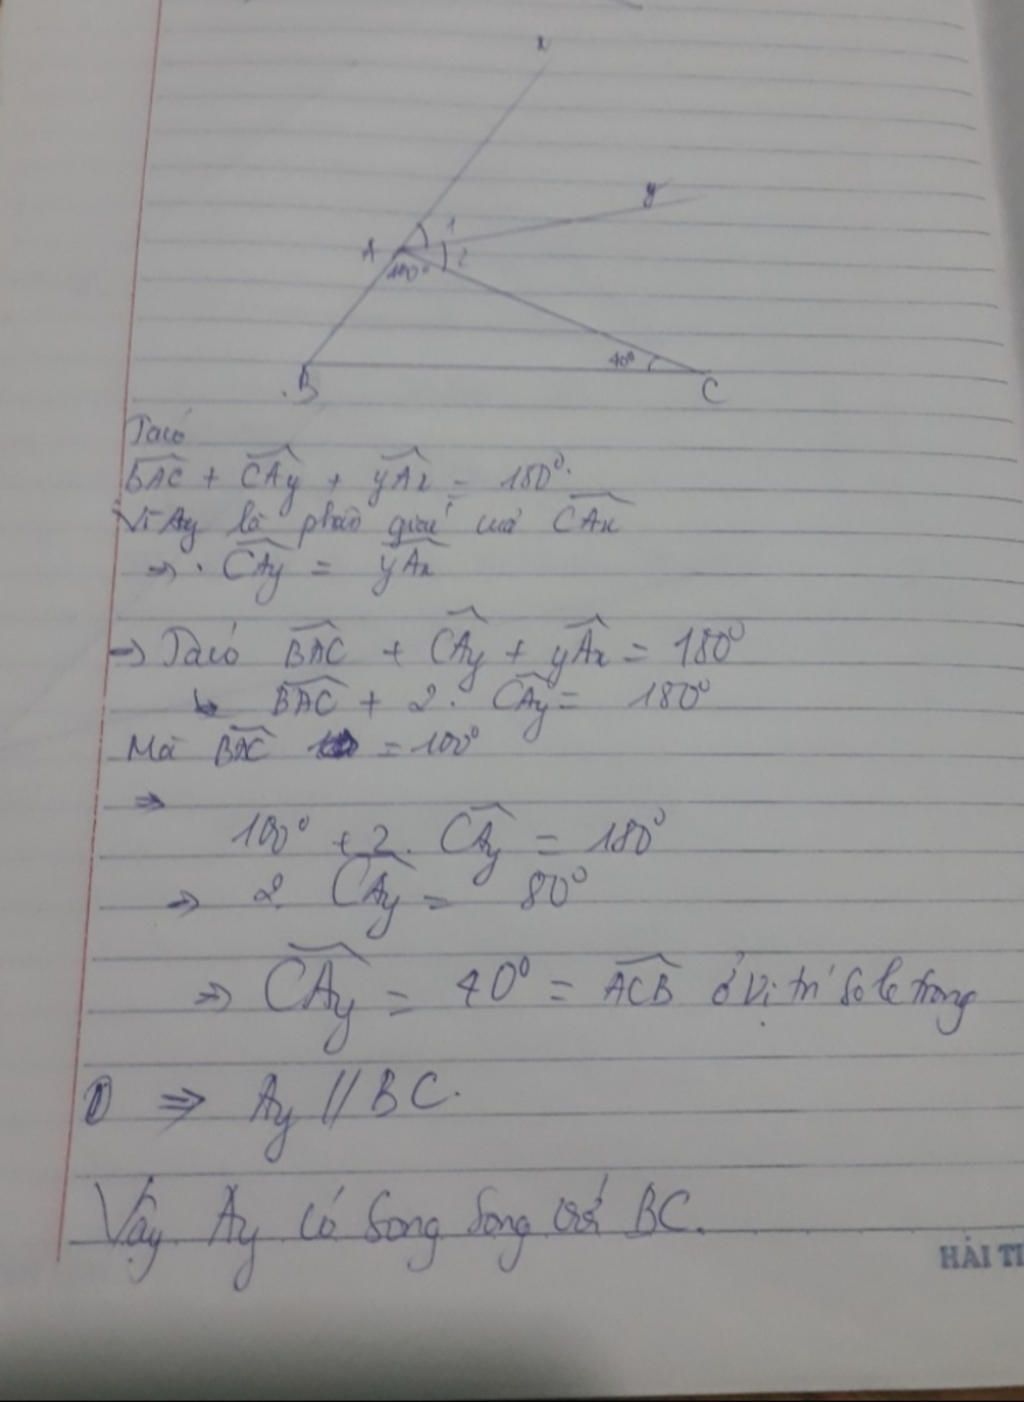 x
y
A 1
2
100°
40°
B
C
Ta có
BAC + CAy + yAx = 180°.
Vì Ay là phân giác của CAx
⇒ . CAy = yAx
⇒ Ta có BAC + CAy + yAx = 180°
↳ BAC + 2. CAy = 180°
Mà BAC = 100°
⇒
100° + 2. CAy = 180°
⇒ 2. CAy = 80°
⇒ CAy = 40° = ACB ở vị trí so le trong
⇒ Ay // BC.
Vậy Ay có song song với BC.
HẢI TI